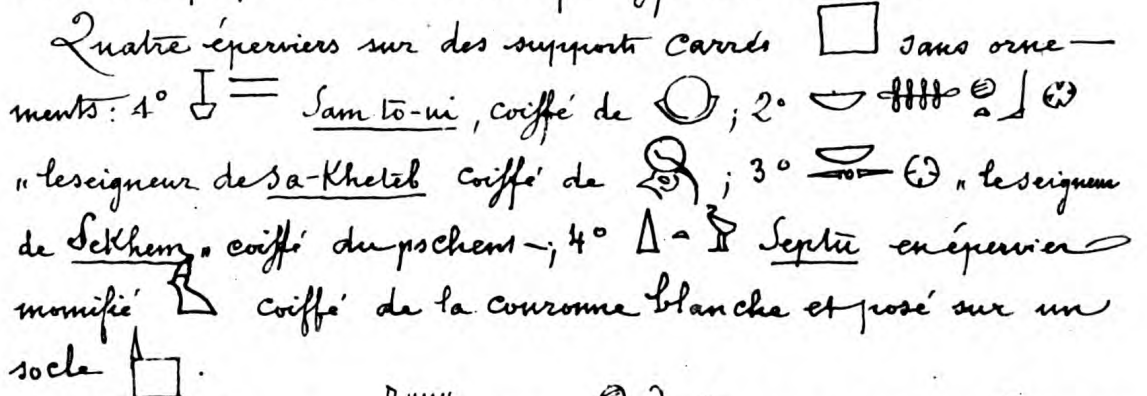 Quatre éperviers sur des supports carrés sans orne-
ments: 1° Sam to-ui, coiffé de ; 2°
"le seigneur de Sa-Kheteb coiffé de ; 3° "le seigneur
de Sekhem" coiffé du pschent-; 4° Septu en épervier
momifié coiffé de la couronne blanche et posé sur un
socle .